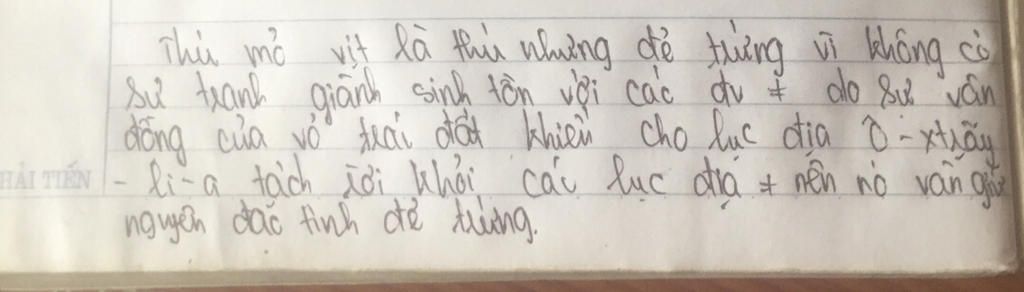 Thú mỏ vịt là thú nhưng đẻ trứng vì không có
sự tranh giành sinh tồn với các đv ≠ do sự vân
đông của vỏ trái đất khiến cho lục địa Ô-xtrây
HẢI TIẾN - li-a tách rời khỏi các lục địa ≠ nên nó vẫn giữ
nguyên đặc tính đẻ trứng.